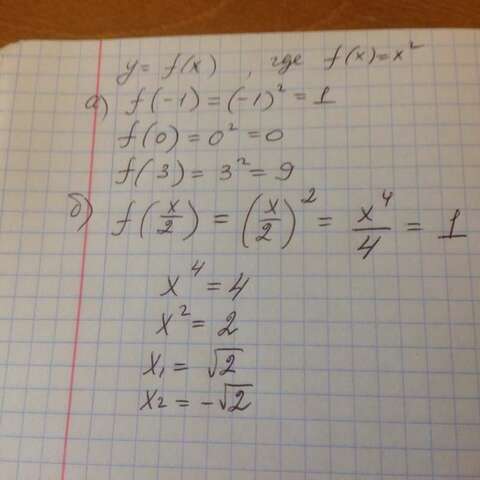 y = f(x) , где f(x)=x²
а) f(-1) = (-1)² = 1
f(0) = 0² = 0
f(3) = 3² = 9
б) f(x/2) = (x/2)² = x⁴/4 = 1
x⁴ = 4
x² = 2
x₁ = √2
x₂ = -√2